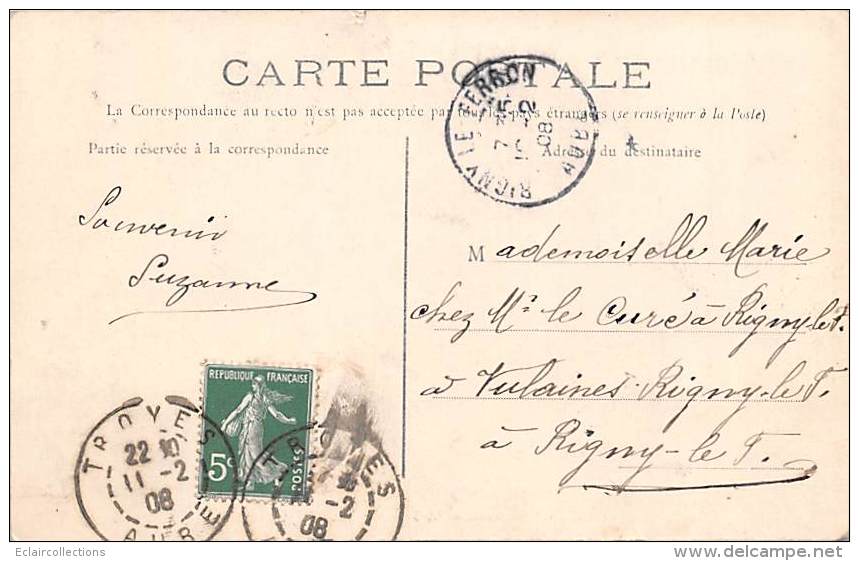 CARTE POSTALE
La Correspondance au recto n'est pas acceptée par tous les pays étrangers (se renseigner à la Poste)
Partie réservée à la correspondance
Adresse du destinataire
RIGNY LE FERRON
AUBE
08
Souvenir
Suzanne
Mademoiselle Marie
chez Mr le Curé à Rigny le F.
à Vulaines Rigny-le F.
à Rigny-le F.
REPUBLIQUE FRANÇAISE
5c
POSTES
TROYES
22 10
11-2
08
AUBE
TROYES
-2
08
Eclaircollections
www.delcampe.net